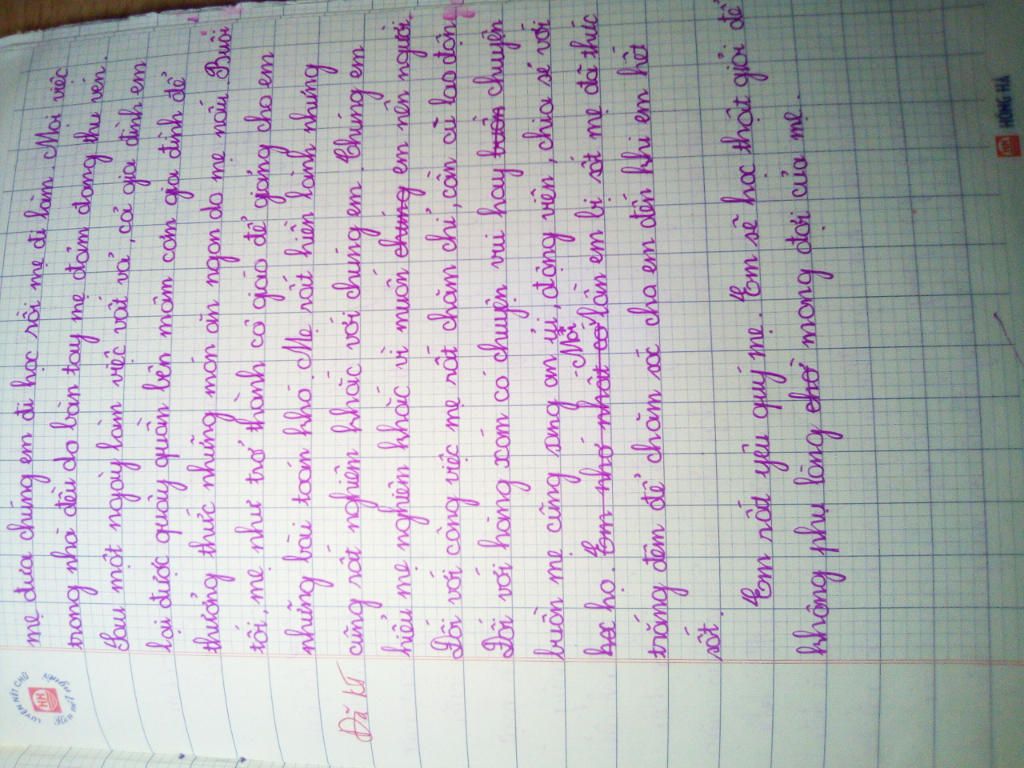 mẹ đưa chúng em đi học rồi mẹ đi làm. Mọi việc
trong nhà đều do bàn tay mẹ đảm đang thu vén.
Sau một ngày làm việc vất vả, cả gia đình em
lại được quây quần bên mâm cơm gia đình để
thưởng thức những món ăn ngon do mẹ nấu. Buổi
tối, mẹ như trở thành cô giáo để giảng cho em
những bài toán khó. Mẹ rất hiền lành nhưng
cũng rất nghiêm khắc với chúng em. Chúng em
hiểu mẹ nghiêm khắc vì muốn chúng em nên người.
Đối với công việc mẹ rất chăm chỉ, cần cù lao động
Đối với hàng xóm có chuyện vui hay buồn chuyện
buồn mẹ cũng sang an ủi, động viên, chia sẻ với
học họ. Em nhớ nhất có Mỗi lần em bị sốt mẹ đã thức
trắng đêm để chăm sóc cho em đến khi em hết
sốt.
Em rất yêu quý mẹ. Em sẽ học thật giỏi để
không phụ lòng chờ mong đợi của mẹ.
Đã KT
LUYỆN NÉT CHỮ
Rèn nết người
HH
HỒNG HÀ